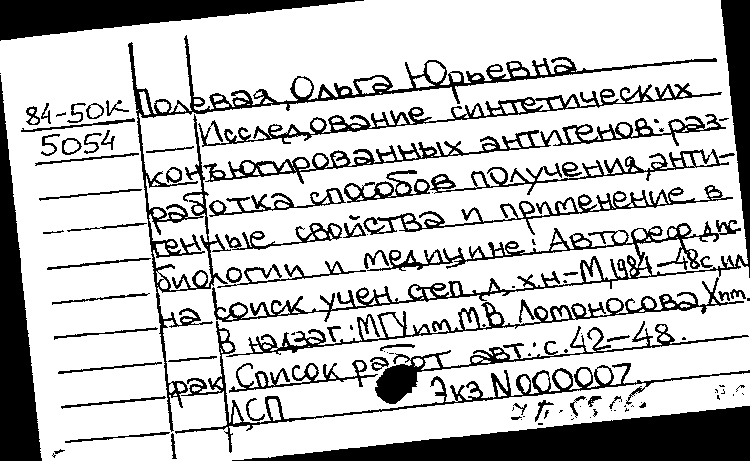 84-50К
5054
Полевая, Ольга Юрьевна.
Исследование синтетических
конъюгированных антигенов: раз-
работка способов получения, анти-
генные свойства и применение в
биологии и медицине: Автореф. дис
на соиск. учен. степ. д. х.н.-М, 1984.-48с, ил
В надзаг.: МГУ им. М.В. Ломоносова, Хим.
фак. Список работ авт.: с.42-48.
Экз N000007.
ДСП